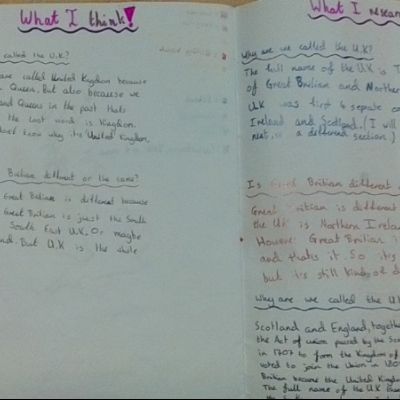 What I think!
called the U.K?
are called United Kingdom because
Queen. But also because we
and Queens in the past thats
the last word is Kingdom.
know why its United Kingdom.
Britian different or the same?
Great Britian is different because
Great Britian is just the South
South East U.K. Or maybe
But U.K is the whole
What I resear
Why are we called the U.K?
The full name of the U.K is T
of Great Britian and Northern
UK was first 4 seperate co
Ireland and Scotland. (I will
a different section.)
Is Great Britian different
Great Britian is different
the UK is Northern Irelan
However Great Britian i
and thats it. So its
but its still kinda of d
Why are we called the U
Scotland and England, togethe
the Act of union passed by the Sco
in 1707 to form the Kingdom of
voted to join the Union in 180
Britian became the United Kingdo
The full name of the U.K